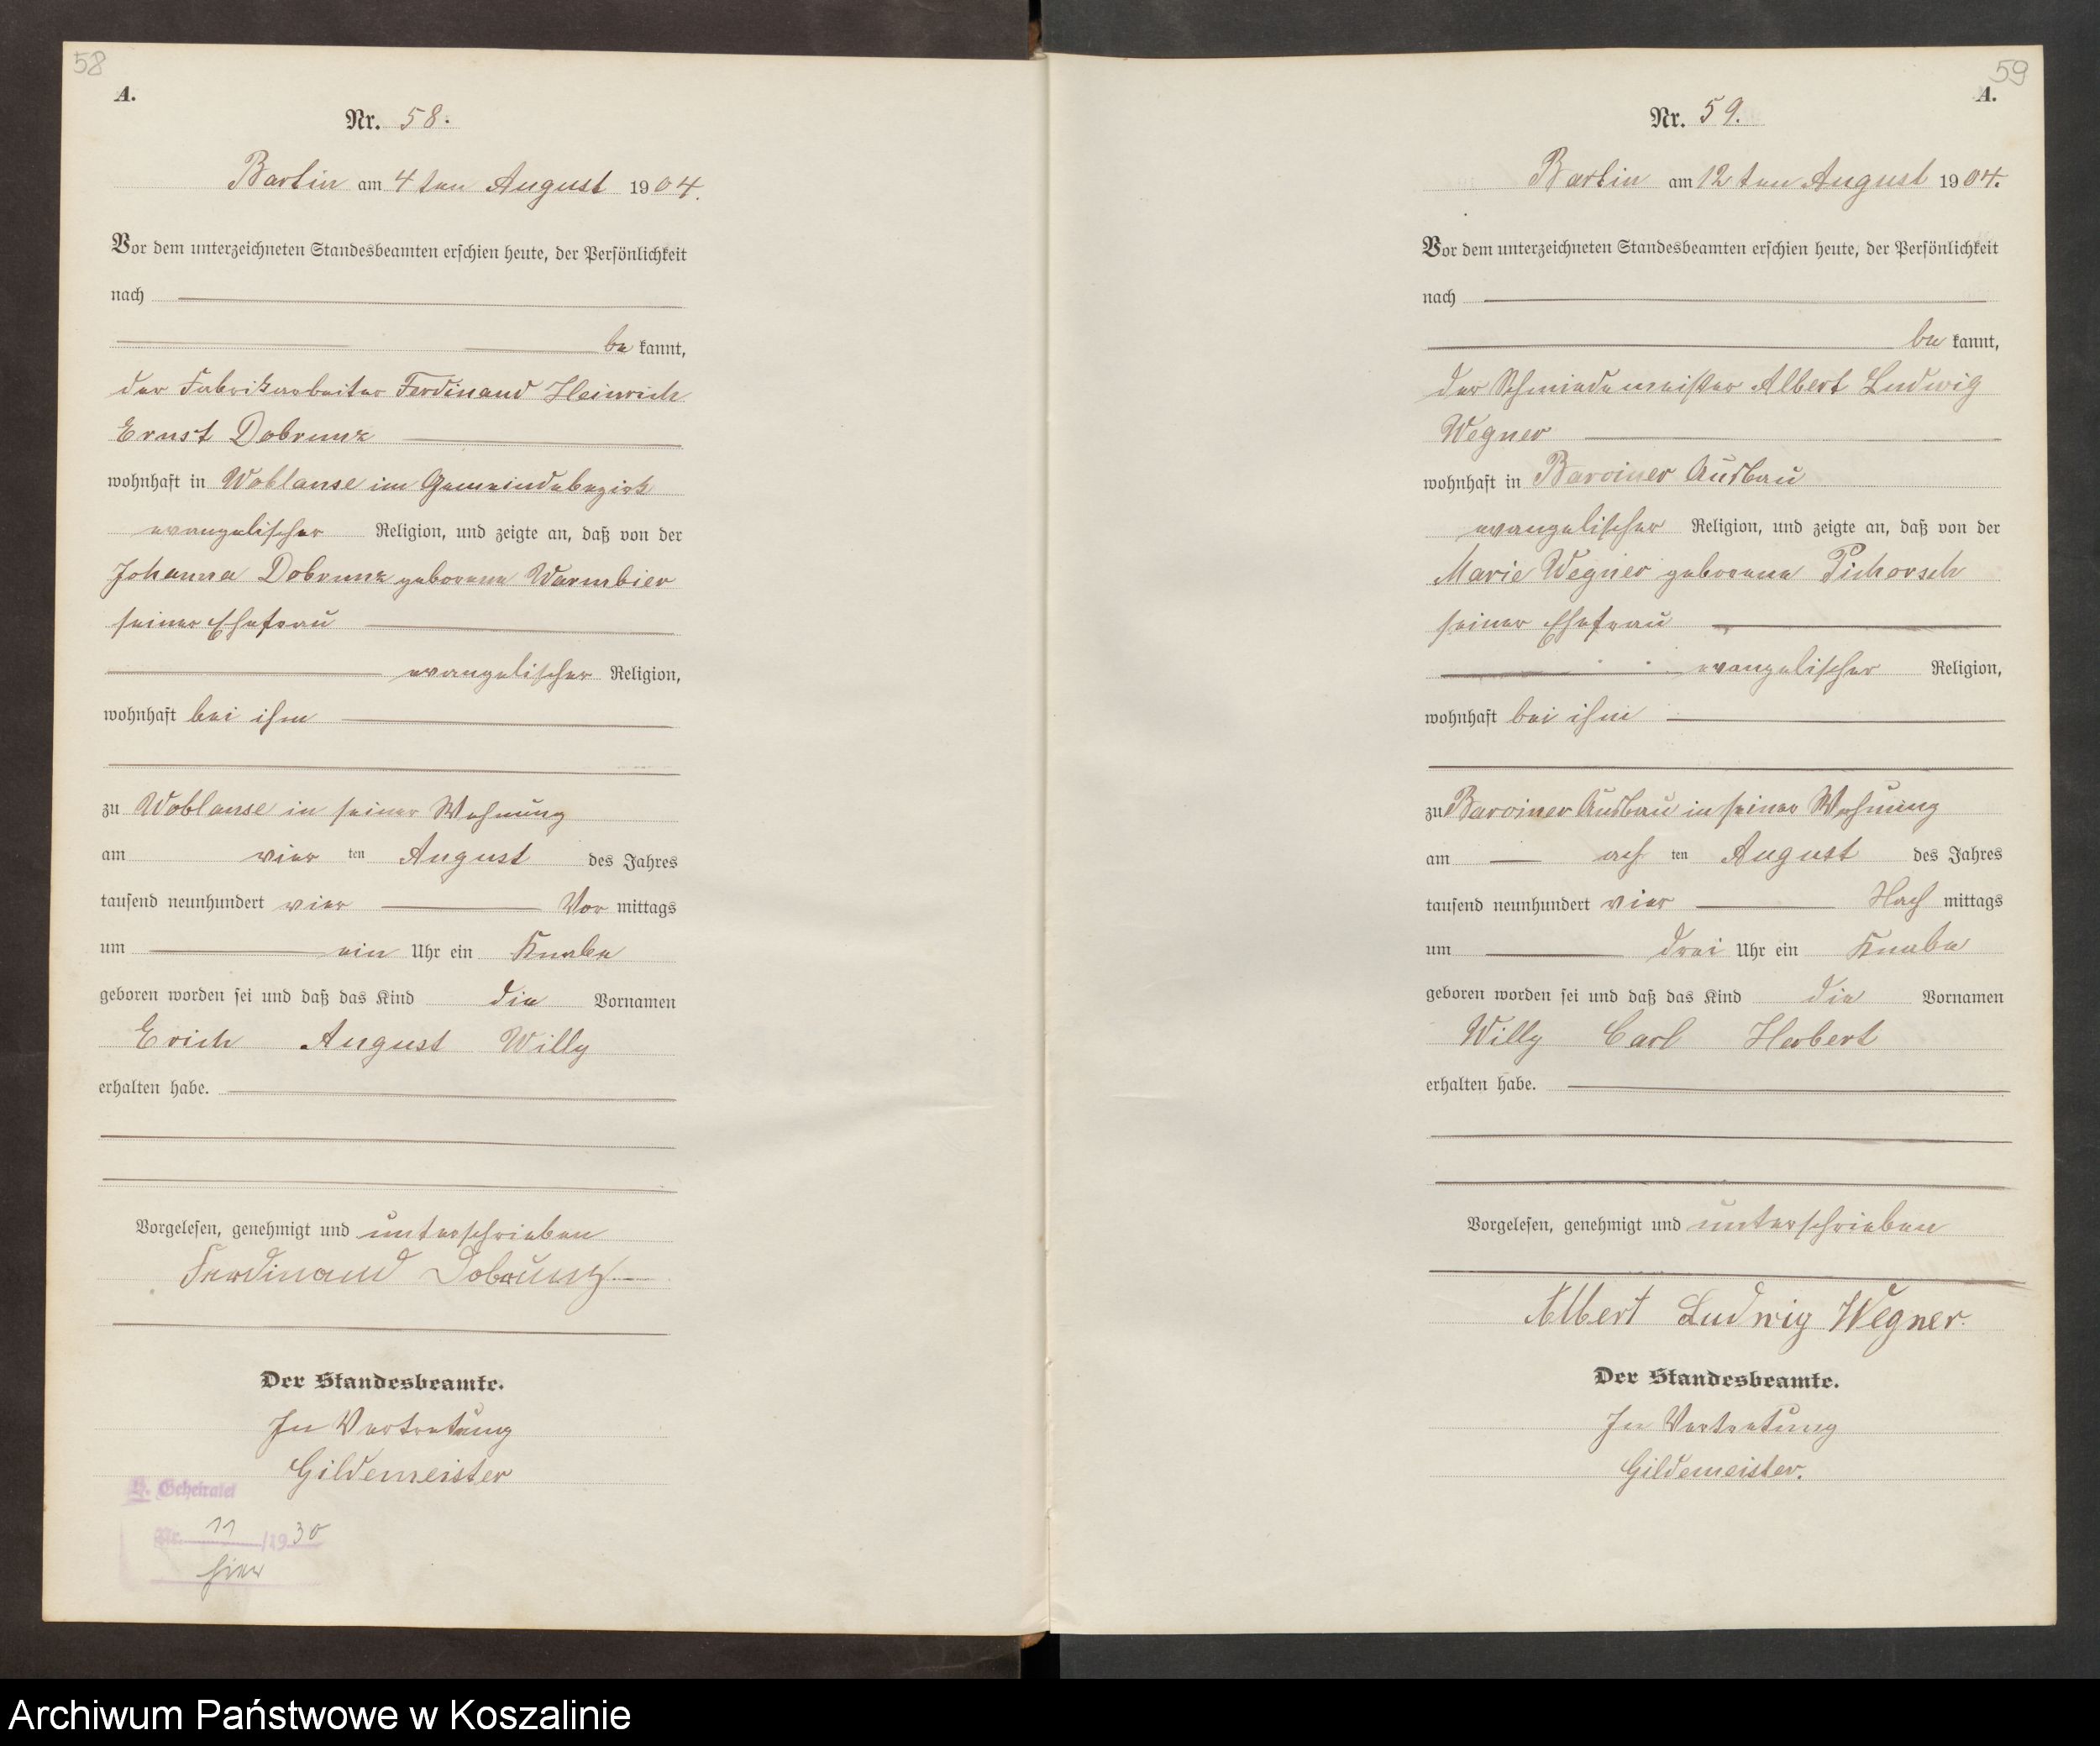 58
A.
Nr. 58.
Bartin am 4 ten August 1904.
Vor dem unterzeichneten Standesbeamten erschien heute, der Persönlichkeit
nach
be kannt,
der Fabrikarbeiter Ferdinand Heinrich
Ernst Dobrunz
wohnhaft in Woblanse im Gemeindebezirk
evangelischer Religion, und zeigte an, daß von der
Johanna Dobrunz geborene Warmbier
seiner Ehefrau
evangelischer Religion,
wohnhaft bei ihm
zu Woblanse in seiner Wohnung
am vier ten August des Jahres
tausend neunhundert vier Vor mittags
um ein Uhr ein Knabe
geboren worden sei und daß das Kind die Vornamen
Erich August Willy
erhalten habe.
Vorgelesen, genehmigt und unterschrieben
Ferdinand Dobrunz
Der Standesbeamte.
In Vertretung
Gildemeister
Nr. 11 /1930
hier
59
A.
Nr. 59.
Bartin am 12 ten August 1904.
Vor dem unterzeichneten Standesbeamten erschien heute, der Persönlichkeit
nach
be kannt,
der Schmiedemeister Albert Ludwig
Wegner
wohnhaft in Barviner Ausbau
evangelischer Religion, und zeigte an, daß von der
Marie Wegner geborene Pichorsch
seiner Ehefrau
evangelischer Religion,
wohnhaft bei ihm
zu Barviner Ausbau in seiner Wohnung
am ach ten August des Jahres
tausend neunhundert vier Nach mittags
um drei Uhr ein Knabe
geboren worden sei und daß das Kind die Vornamen
Willy Carl Herbert
erhalten habe.
Vorgelesen, genehmigt und unterschrieben
Albert Ludwig Wegner.
Der Standesbeamte.
In Vertretung
Gildemeister.
Archiwum Państwowe w Koszalinie